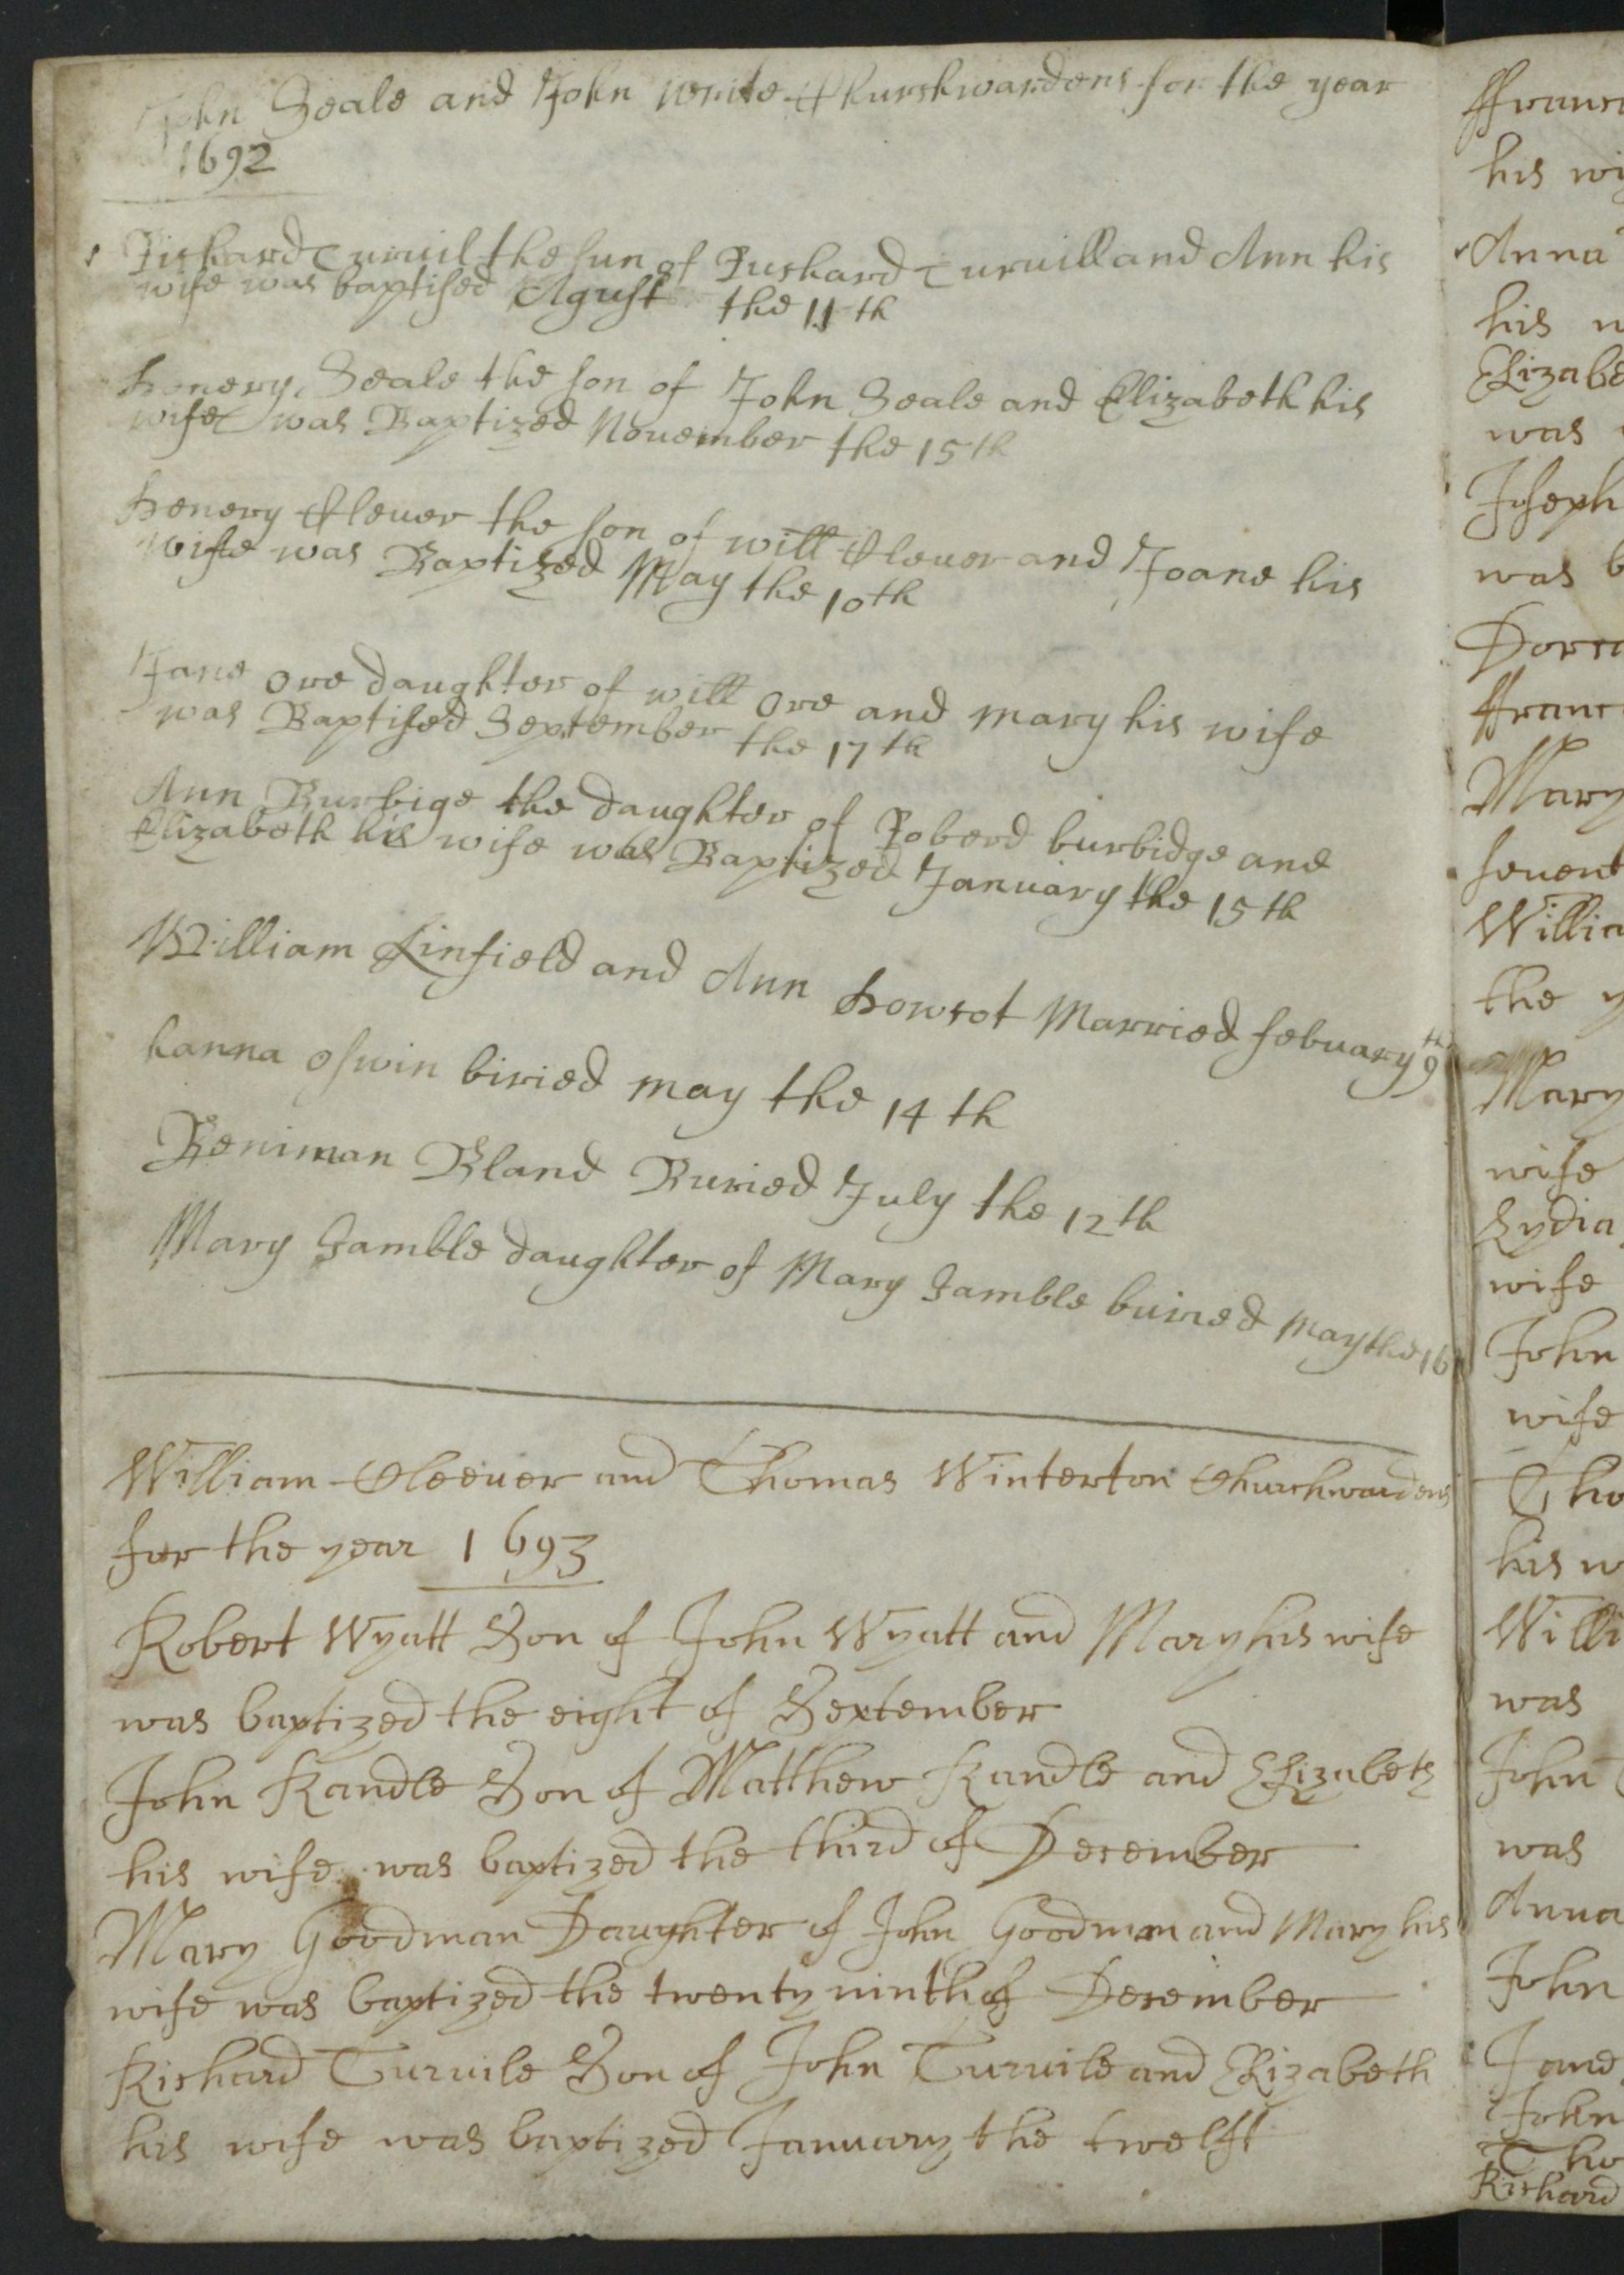 John Seale and John write Churchwardens for the year
1692
Richard Turuil the sun of Ruchard Turuill and Ann his
wife was baptised Agust the 11th
henery Seale the son of John Seale and Elizabeth his
wife was Baptized Nouember the 15th
henery Cleuer the son of will Cleuer and Joane his
wife was Baptized May the 10th
Jane ore daughter of will ore and mary his wife
was Baptised September the 17th
Ann Burbige the daughter of Roberd burbidge and
Elizabeth his wife was Baptized January the 15th
William Linfield and Ann Married febuary 9th
hanna oswin biried may the 14th
Beniman Bland Buried July the 12th
Mary Gamble daughter of Mary Gamble buired may the 16
William Cleeuer and Thomas Winterton Churchwardens
for the year 1693
Robert Wyatt Son of John Wyatt and Mary his wife
was baptized the eight of September
John Randle Son of Matthew Randle and Elizabeth
his wife was baptized the third of December
Mary Goodman Daughter of John Goodman and Mary his
wife was baptized the twenty ninth of December
Richard Turuile Son of John Turuile and Elizabeth
his wife was baptized January the twelft
his
Anna
his
was
Joseph
was
Mary
the
Mary
wife
Lydia
wife
John
wife
his
was
John
was
Anna
John
Jane
John
Richard